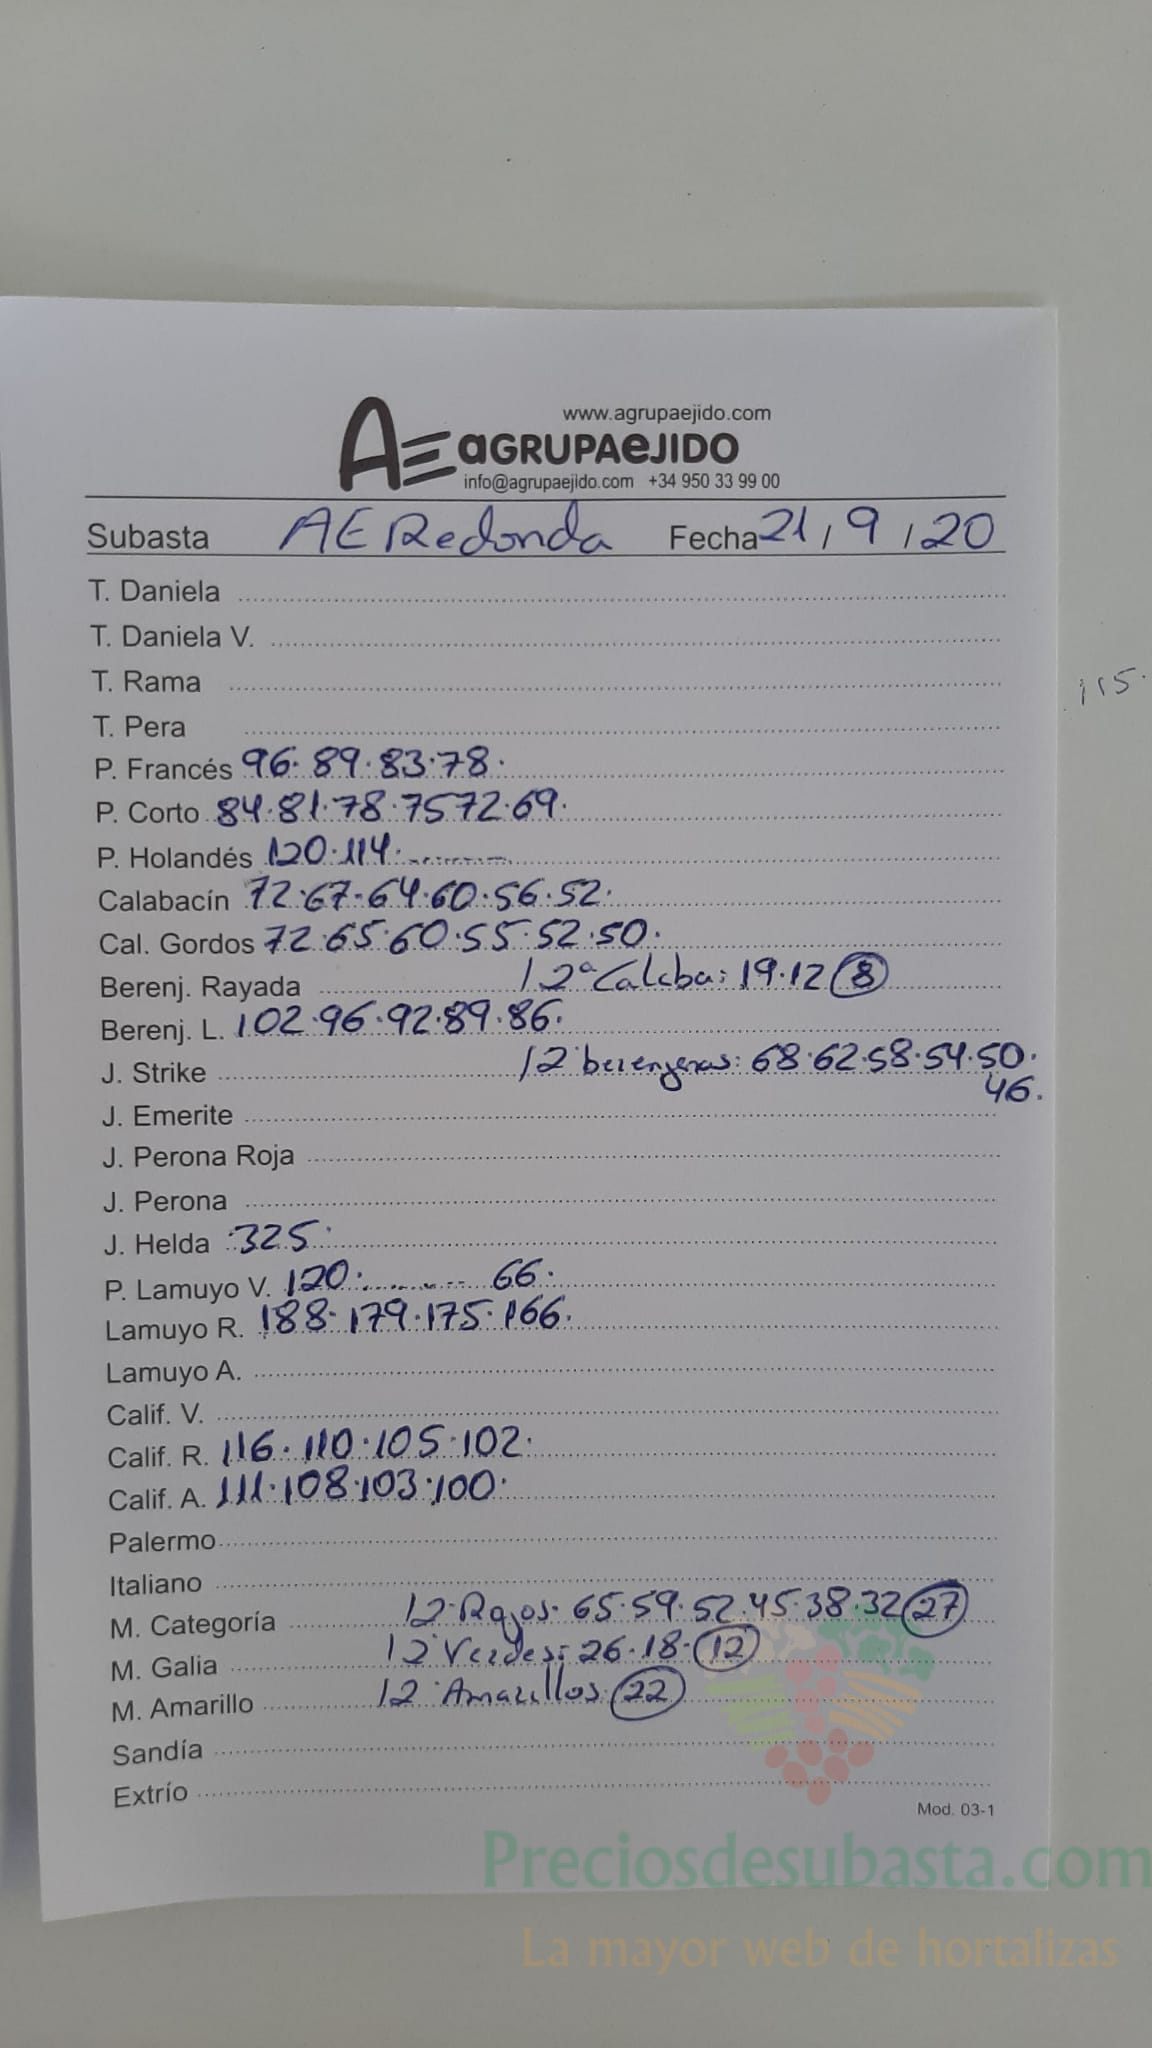 www.agrupaejido.com
AE aGRUPAeJIDO
info@agrupaejido.com +34 950 33 99 00
Subasta AE Redonda Fecha 21/9/20
T. Daniela
T. Daniela V.
T. Rama
115.
T. Pera
P. Francés 96.89.83.78.
P. Corto 84.81.78.75 72.69.
P. Holandés 120.114.
Calabacín 72.67-64.60.56.52.
Cal. Gordos 72.65.60.55.52.50.
Berenj. Rayada / 2ª Calaba: 19.12 (8)
Berenj. L. 102.96.92.89.86.
J. Strike / 2 berenjenas: 68.62.58.54.50.
46.
J. Emerite
J. Perona Roja
J. Perona
J. Helda 325.
P. Lamuyo V. 120. ........ 66.
Lamuyo R. 188.179.175.166.
Lamuyo A.
Calif. V.
Calif. R. 116.110.105.102.
Calif. A. 111.108.103.100.
Palermo
Italiano
M. Categoría / 2 Rojos. 65.59.52.45.38.32 (27)
M. Galia / 2 Verdes: 26.18. (12)
M. Amarillo / 2 Amarillos: (22)
Sandía
Extrío
Mod. 03-1
Preciosdesubasta.com
La mayor web de hortalizas